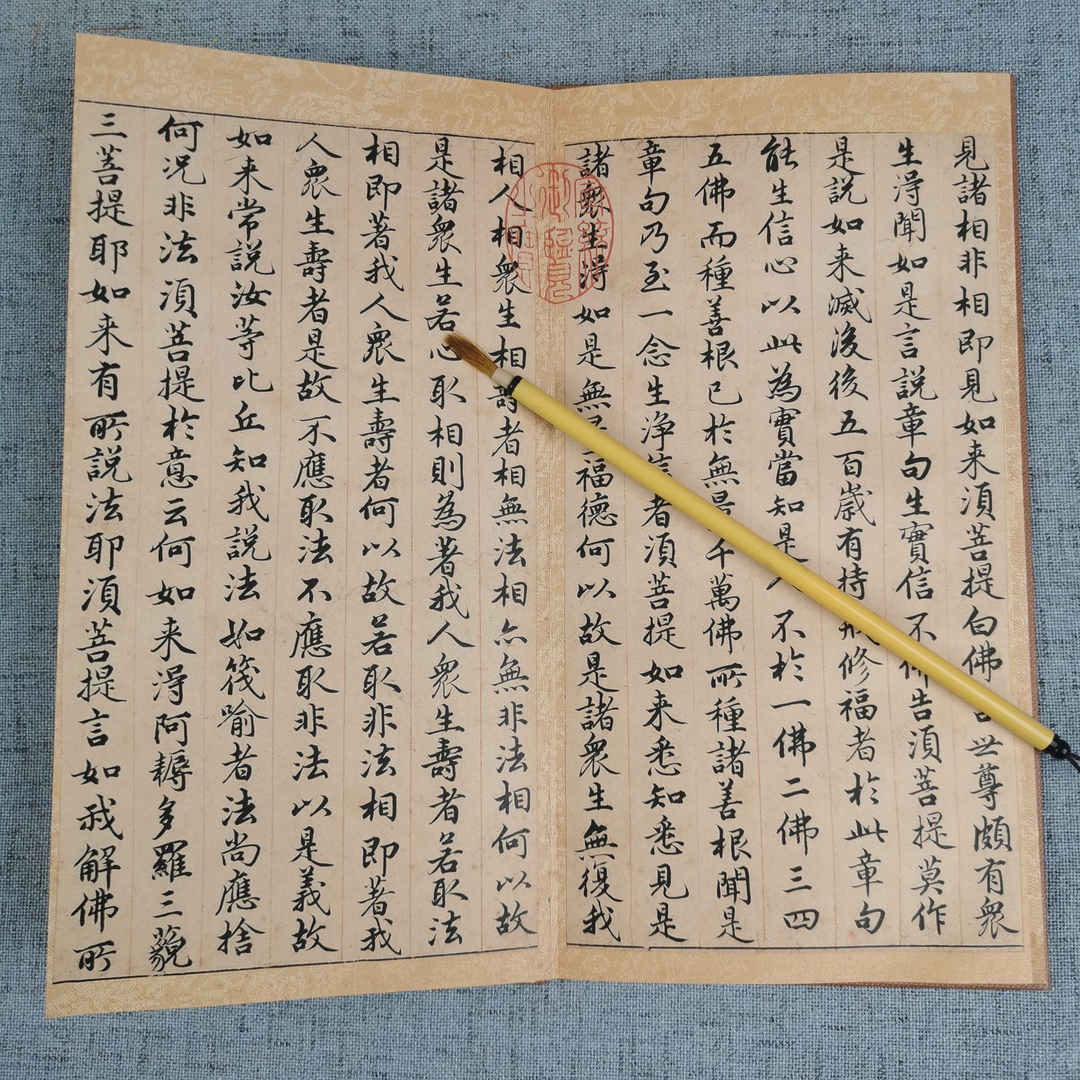 見諸相非相即見如来須菩提白佛言世尊頗有衆
生淂聞如是言説章句生實信不佛告須菩提莫作
是説如来滅後後五百歲有持戒修福者於此章句
能生信心以此為實當知是人不於一佛二佛三四
五佛而種善根已於無量千萬佛所種諸善根聞是
章句乃至一念生淨信者須菩提如来悉知悉見是
諸衆生淂如是無量福德何以故是諸衆生無復我
相人相衆生相壽者相無法相亦無非法相何以故
是諸衆生若心取相則為著我人衆生壽者若取法
相即著我人衆生壽者何以故若取非法相即著我
人衆生壽者是故不應取法不應取非法以是義故
如来常説汝等比丘知我説法如筏喻者法尚應捨
何况非法須菩提於意云何如来淂阿耨多羅三藐
三菩提耶如来有所説法耶須菩提言如我解佛所